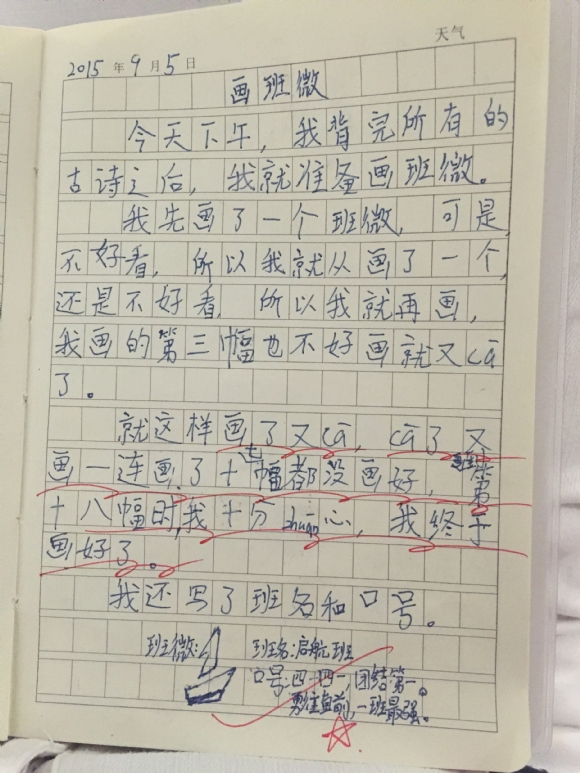 天气
2015年9月5日
画班微
今天下午，我背完所有的
古诗之后，我就准备画班微。
我先画了一个班微，可是
不好看，所以我就从画了一个，
还是不好看，所以我就再画，
我画的第三幅也不好画就又cā
了。
就这样画了又cā，cā了又
画一连画了十七幅都没画好，画第
十八幅时，我十分zhuān心，我终于
画好了。
我还写了班名和口号。
班微：
班名：启航班
口号：四一四一，团结第一。
勇往直前，一班最强。